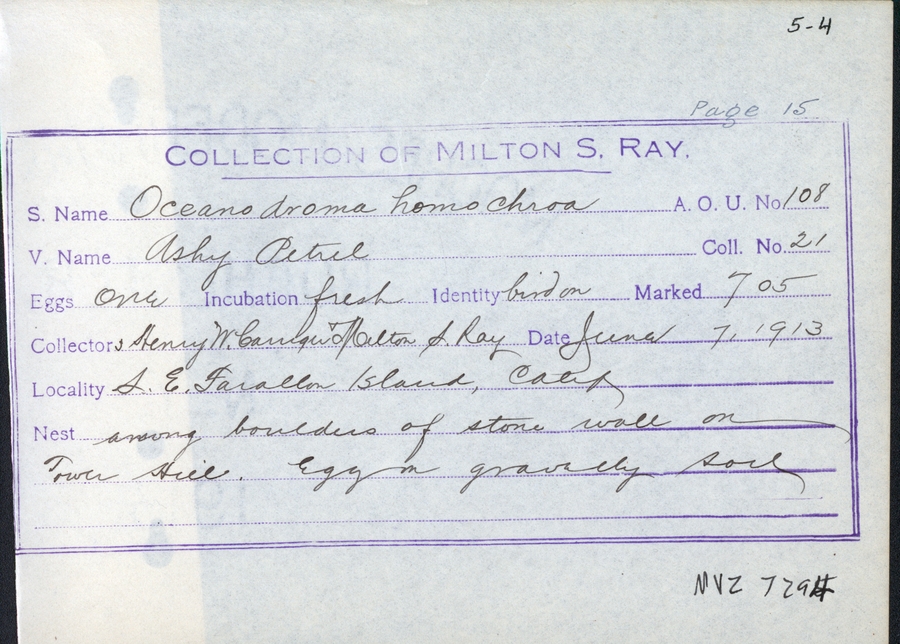 5-4
Page 15
COLLECTION OF MILTON S. RAY.
S. Name Oceanodroma homochroa A. O. U. No. 108
V. Name Ashy Petrel Coll. No. 21
Eggs one Incubation fresh Identity bird on Marked 705
Collectors Henry W. Carriger & Milton S. Ray Date June 7, 1913
Locality S. E. Farallon Island, Calif
Nest among boulders of stone wall on
Tower Hill. Egg on gravelly soil
MVZ